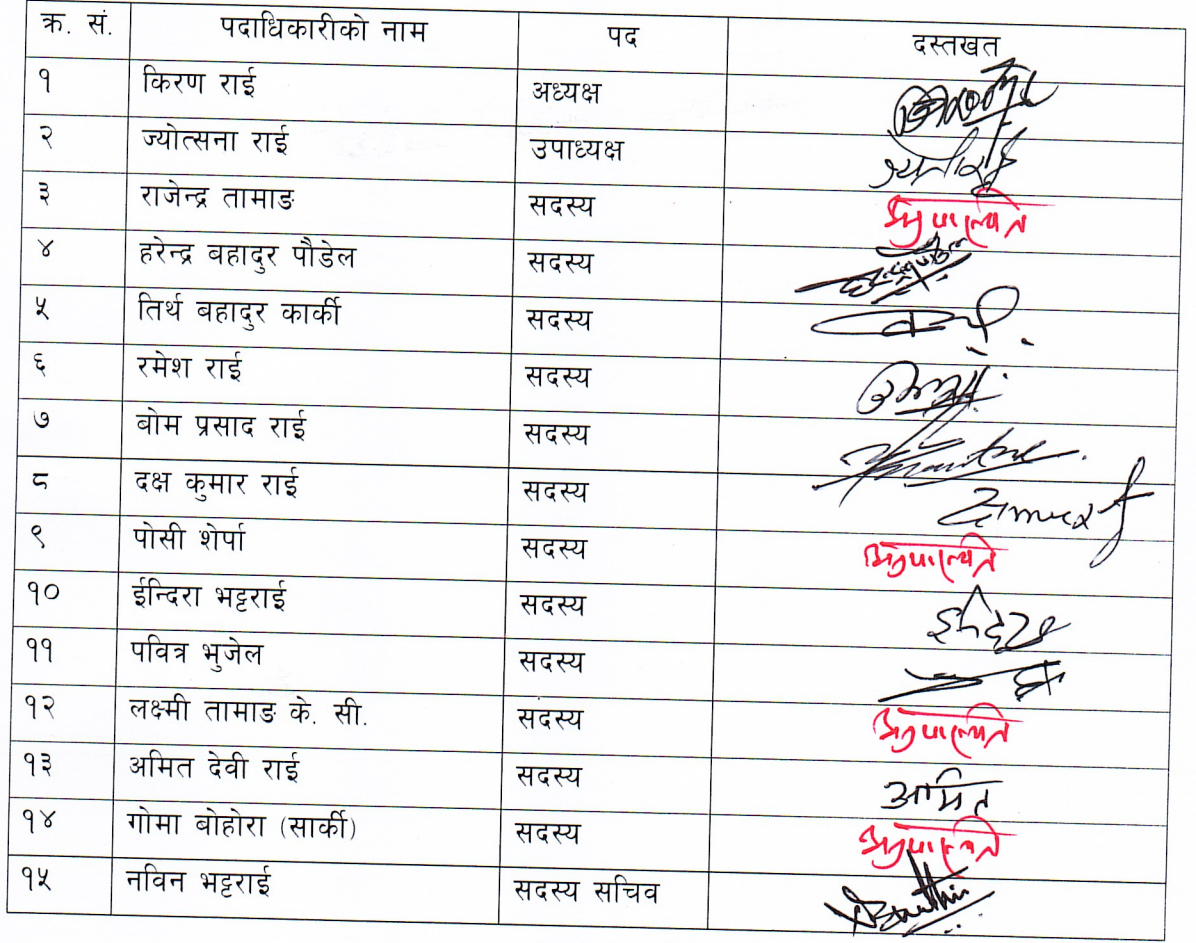 क्र. सं. पदाधिकारीको नाम पद दस्तखत
१ किरण राई अध्यक्ष
२ ज्योत्सना राई उपाध्यक्ष
३ राजेन्द्र तामाङ सदस्य अनुपस्थित
४ हरेन्द्र बहादुर पौडेल सदस्य
५ तिर्थ बहादुर कार्की सदस्य
६ रमेश राई सदस्य
७ बोम प्रसाद राई सदस्य
८ दक्ष कुमार राई सदस्य
९ पोसी शेर्पा सदस्य अनुपस्थित
१० ईन्दिरा भट्टराई सदस्य
११ पवित्र भुजेल सदस्य
१२ लक्ष्मी तामाङ के. सी. सदस्य अनुपस्थित
१३ अमित देवी राई सदस्य अमित
१४ गोमा बोहोरा (सार्की) सदस्य अनुपस्थित
१५ नविन भट्टराई सदस्य सचिव